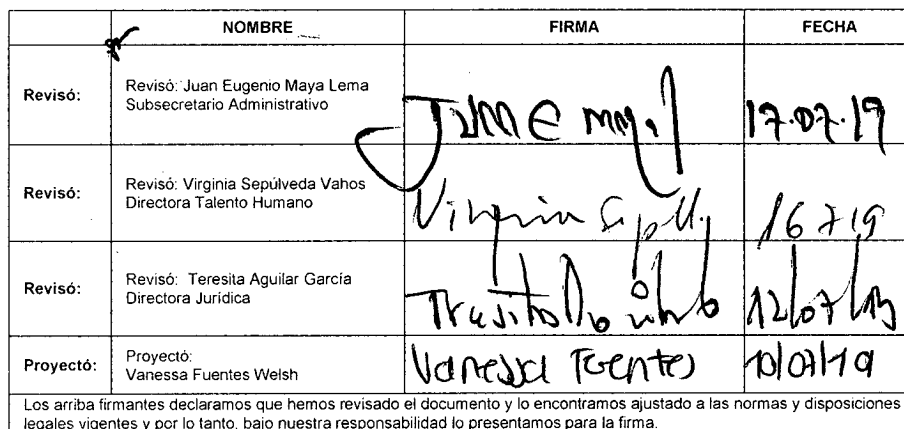 NOMBRE FIRMA FECHA
Revisó: Revisó: Juan Eugenio Maya Lema
Subsecretario Administrativo
17.07.19
Revisó: Revisó: Virginia Sepúlveda Vahos
Directora Talento Humano
Virginia 16 7 19
Revisó: Revisó: Teresita Aguilar García
Directora Jurídica
12/07/19
Proyectó: Proyectó:
Vanessa Fuentes Welsh
Vanessa Fuentes 10/07/19
Los arriba firmantes declaramos que hemos revisado el documento y lo encontramos ajustado a las normas y disposiciones
legales vigentes y por lo tanto, bajo nuestra responsabilidad lo presentamos para la firma.